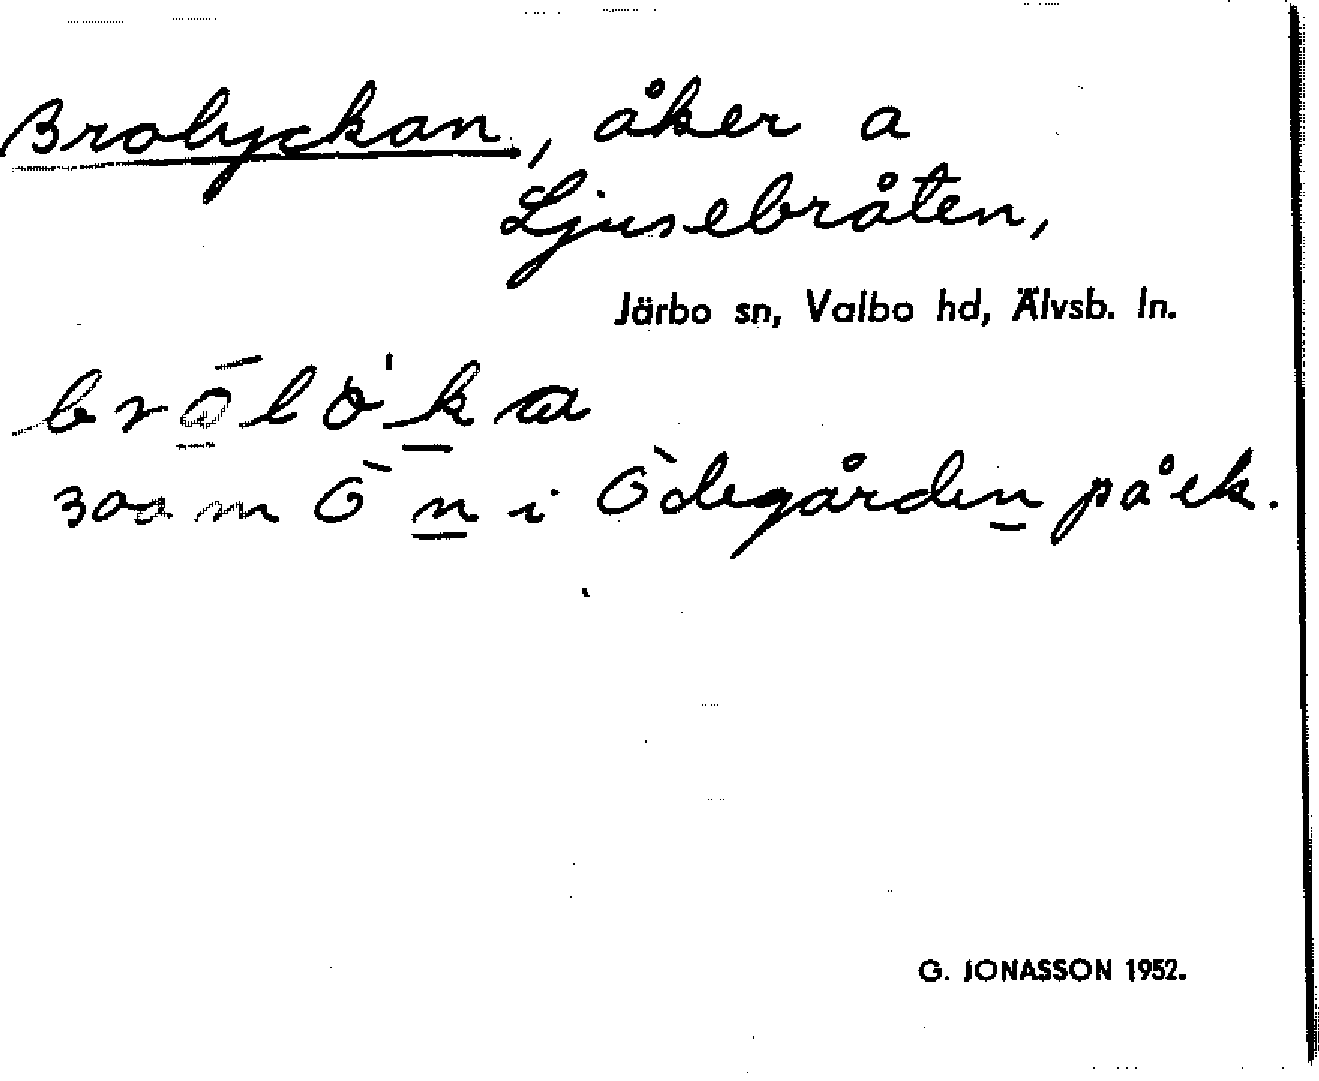 Brolyckan, åker a
Ljusebråten,
Järbo sn, Valbo hd, Älvsb. ln.
brōlò'ka
300 m Ö n i Ödegården på ek.
G. JONASSON 1952.